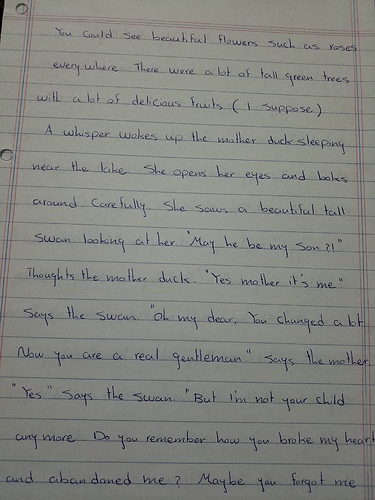 You could see beautiful flowers such as roses
everywhere. There were a lot of tall green trees
with a lot of delicious fruits ( I suppose )
A whisper wakes up the mother duck sleeping
near the lake. She opens her eyes and looks
around carefully. She saws a beautiful tall
swan looking at her. "May he be my son ?!"
Thoughts the mother duck. "Yes mother it's me."
Says the swan. "Oh my dear. You changed a lot
Now you are a real gentleman" says the mother.
"Yes" says the swan. "But I'm not your child
any more. Do you remember how you broke my heart
and abandoned me ? Maybe you forgot me